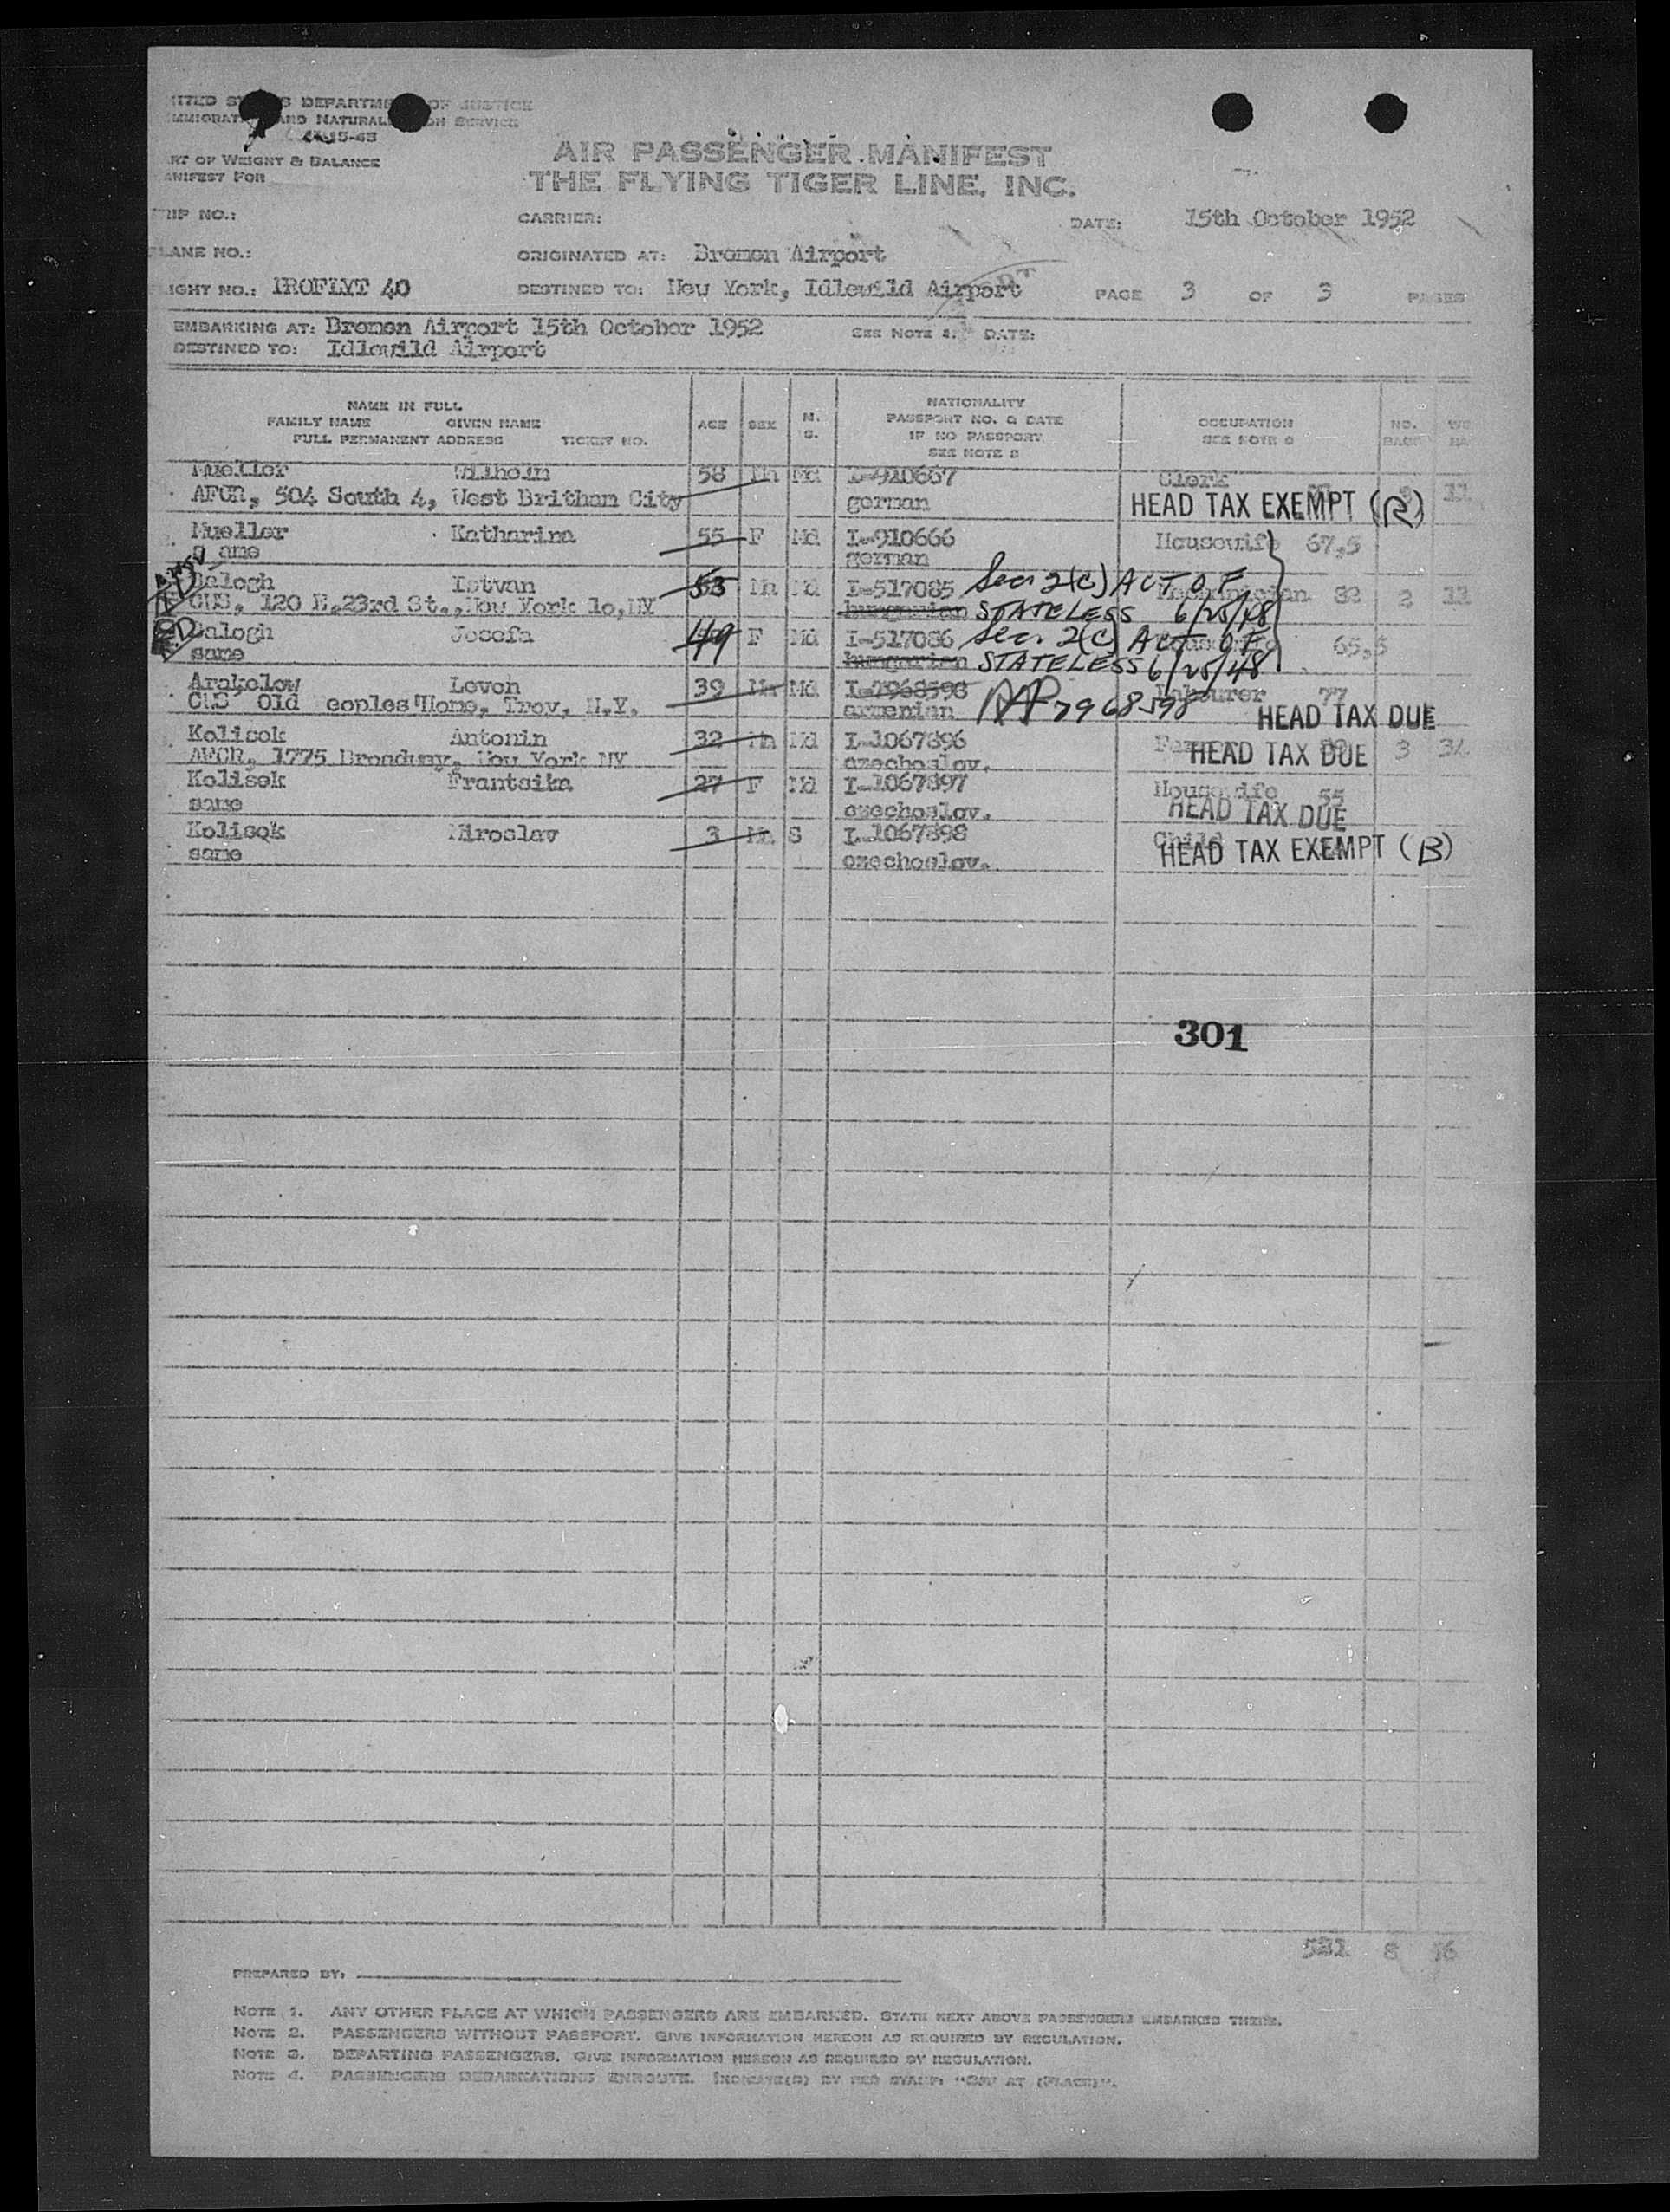 ITED S S DEPARTME OF JUSTICE
MMIGRAT AND NATURAL ON SERVICE
15-43
RT OF WEIGHT & BALANCE
ANIFEST FOR
AIR PASSENGER MANIFEST
THE FLYING TIGER LINE, INC.
IP NO.: CARRIER: DATE: 15th October 1952
LANE NO.: ORIGINATED AT: Bremen Airport
IGHT NO.: IROFLYT 40 DESTINED TO: New York, Idlewild Airport PAGE 3 OF 3 PAGES
EMBARKING AT: Bremen Airport 15th October 1952 SEE NOTE 1. DATE:
DESTINED TO: Idlewild Airport
NAME IN FULL
FAMILY NAME GIVEN NAME
FULL PERMANENT ADDRESS TICKET NO.
AGE SEX M. S.
NATIONALITY
PASSPORT NO. & DATE
IF NO PASSPORT,
SEE NOTE 2
OCCUPATION
SEE NOTE 3
NO. BAGS
Mueller Wilhelm 58 Mn Md I-910667 Clerk
AFCR, 504 South 4, West Brithan City german HEAD TAX EXEMPT (R) 11
Mueller Katharina 55 F Md I-910666 Housewife 67,5
same german
Balogh Istvan 53 Mn Md I-517085 Sec. 2(C) ACT OF
CWS, 120 E.23rd St., New York 10,NY hungarian STATELESS 6/25/48 82 2 11
Balogh Josefa 49 F Md I-517086 Sec. 2(C) ACT OF 65,5
same hungarian STATELESS 6/25/48
Arakelow Levon 39 Mn Md I-7968598 Labourer 77
CWS Old eoples Home, Troy, N.Y. armenian 7968598 HEAD TAX DUE
Kolisek Antonin 32 Mn Md I-1067896
AFCR, 1775 Broadway, New York NY czechoslov. HEAD TAX DUE 3
Kolisek Frantsita 27 F Md I-1067897 Housewife 55
same czechoslov. HEAD TAX DUE
Kolisek Miroslav 3 Mn S I-1067898 Child
same czechoslov. HEAD TAX EXEMPT (B)
301
521 8 56
PREPARED BY:
NOTE 1. ANY OTHER PLACE AT WHICH PASSENGERS ARE EMBARKED. STATE NEXT ABOVE PASSENGERS EMBARKED THERE.
NOTE 2. PASSENGERS WITHOUT PASSPORT. GIVE INFORMATION HEREON AS REQUIRED BY REGULATION.
NOTE 3. DEPARTING PASSENGERS. GIVE INFORMATION HEREON AS REQUIRED BY REGULATION.
NOTE 4. PASSENGERS DEBARKATIONS ENROUTE. INDICATE(D) BY RED STAMP: "OFF AT (PLACE)".